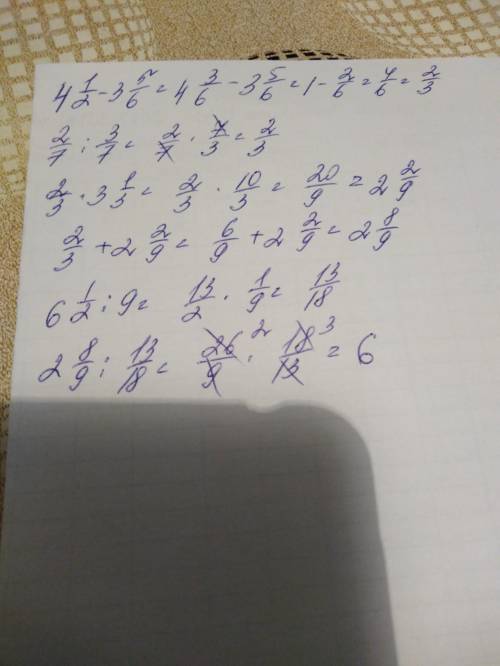 4 1/2 - 3 5/6 = 4 3/6 - 3 5/6 = 1 - 2/6 = 4/6 = 2/3
2/7 : 3/7 = 2/7 · 7/3 = 2/3
2/3 · 3 1/3 = 2/3 · 10/3 = 20/9 = 2 2/9
2/3 + 2 2/9 = 6/9 + 2 2/9 = 2 8/9
6 1/2 : 9 = 13/2 · 1/9 = 13/18
2 8/9 : 13/18 = 26/9 2 · 18/13 3 = 6